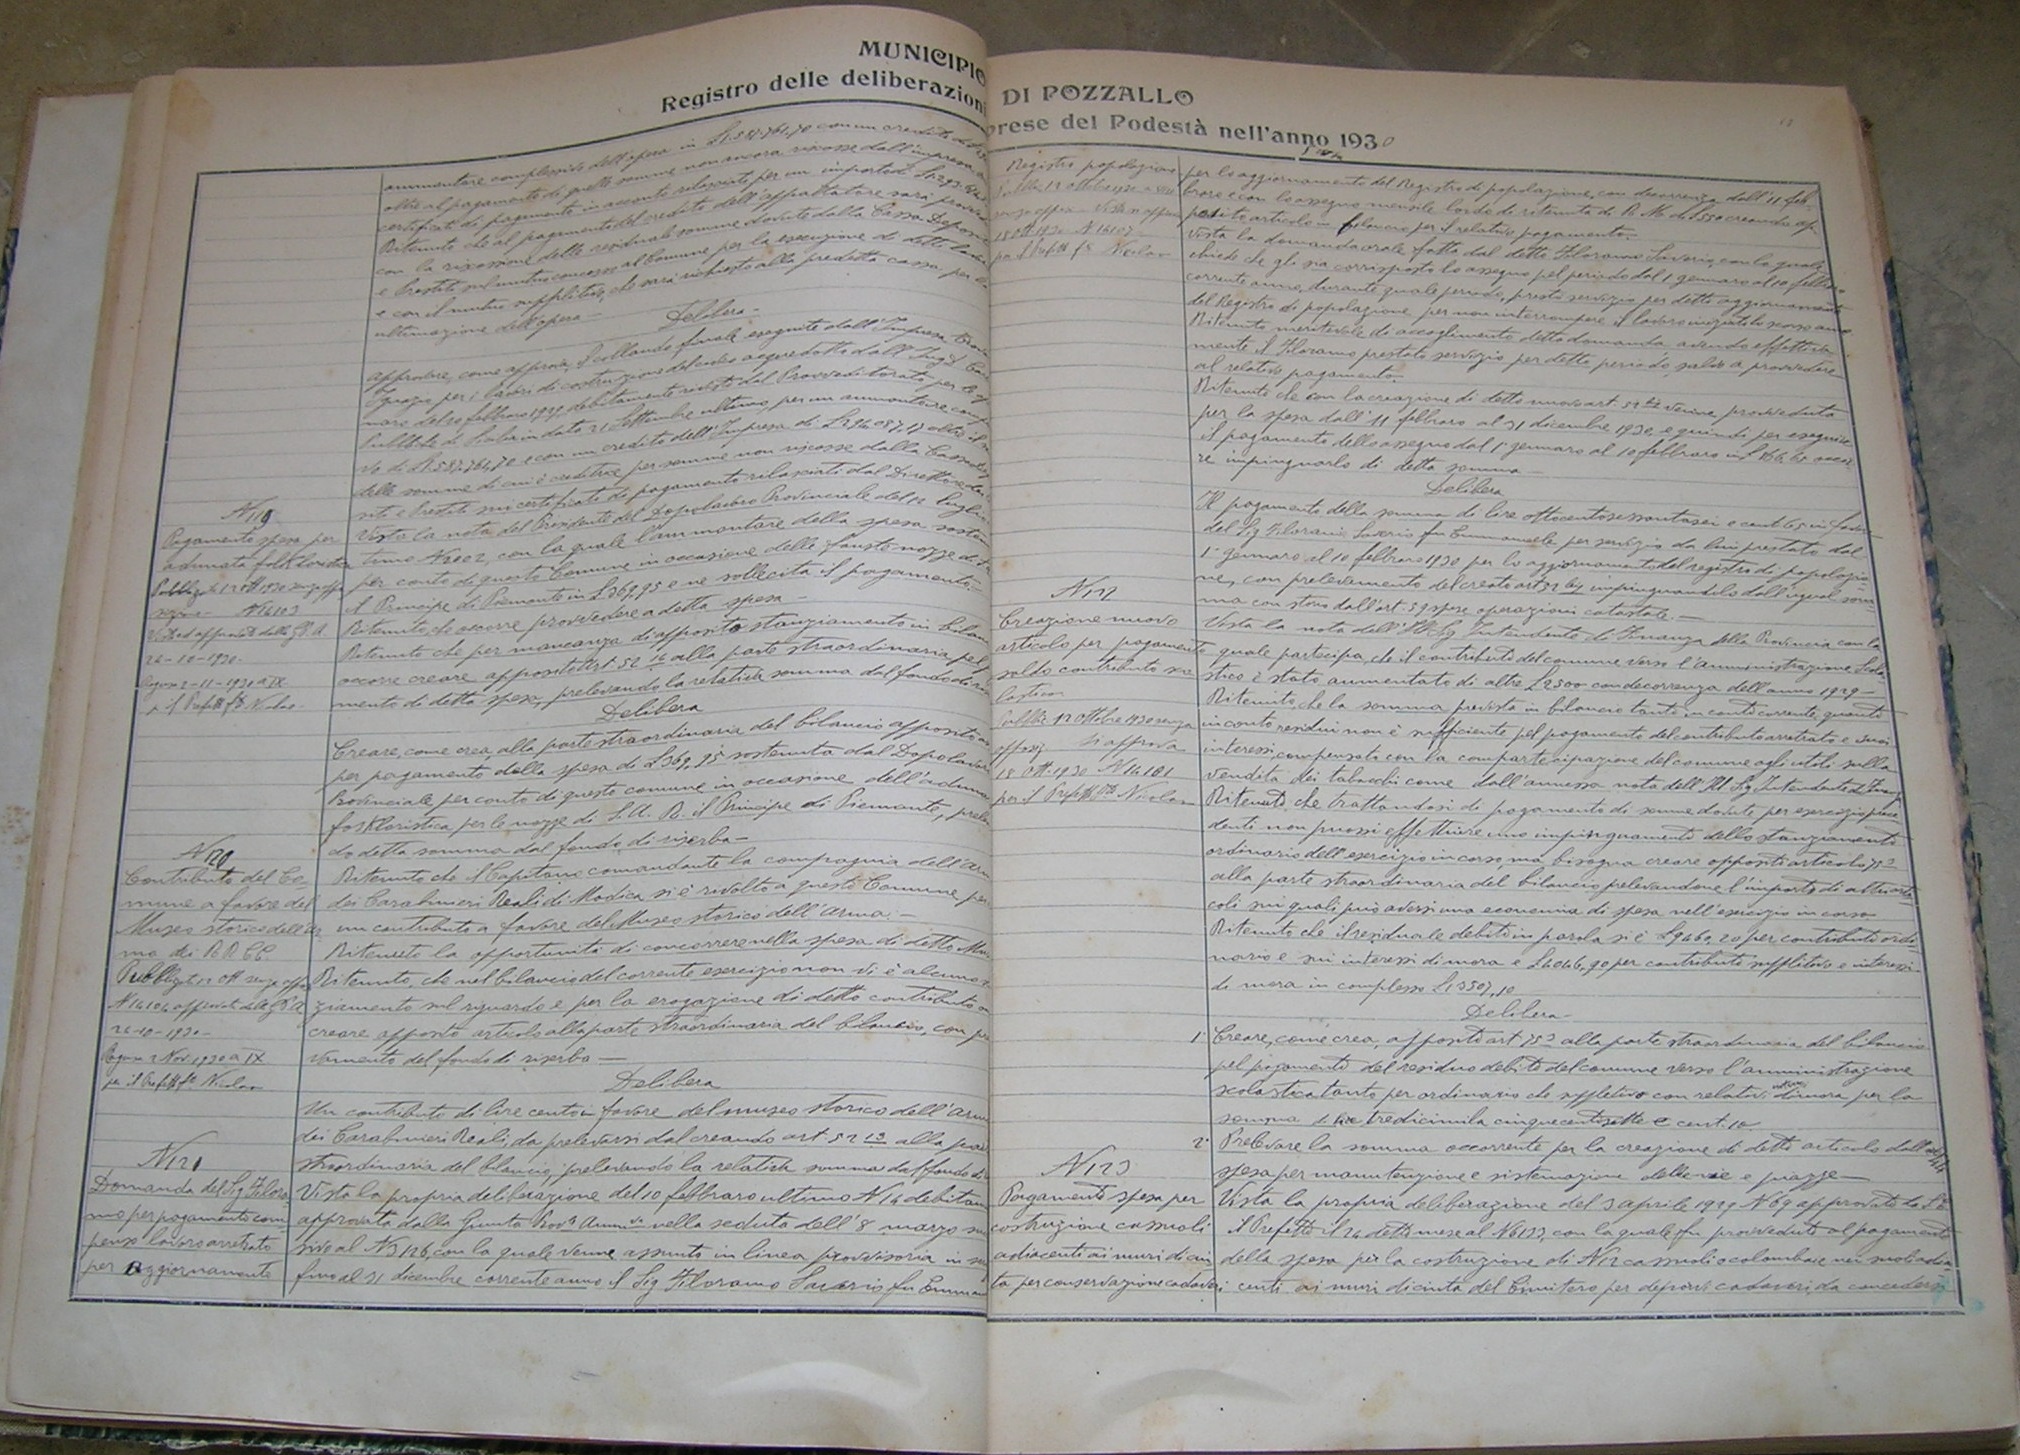 MUNICIPIO DI POZZALLO
Registro delle deliberazioni prese del Podestà nell'anno 1930
ammontare complessivo dell'opera in
oltre al pagamento di quelle somme non ancora riscosse dall'impresa
certificati di pagamento in acconto rilasciati per un importo di
Ritenuto che al pagamento del credito dell'appaltatore sarà
con la riscossione delle residuali somme dovute dalla Cassa Depositi
e Prestiti sul mutuo concesso al Comune per la esecuzione di detti
e con il mutuo suppletivo, che sarà richiesto alla predetta cassa per la
ultimazione dell'opera—
Delibera—
approvare, come approva, il collaudo finale eseguito dall'Impresa
per i lavori di costruzione del civico acquedotto dall'Ing.
febbraio 1929, debitamente revisto dal Provveditorato per le
in data 21 Settembre ultimo, per un ammontare
vo di L. 587.761,70 e con un credito dell'Impresa di
delle somme di cui è creditrice per somme non riscosse dalla Cassa
siti e Prestiti sui certificati di pagamento rilasciati dal Direttore dei
N 119
Pagamento spesa per
adunata folkloristica
Pubblicata 12 Ott 1930 senza oppo
sizione— N 14103
Vista ed approvata dalla G.P.A.
24-10-1930.
Ragusa 2-11-1930 a IX
p. il Prefetto Nicolao
Vista la nota del Presidente del Dopolavoro Provinciale del 12 luglio
timo N 2002, con la quale l'ammontare della spesa
per conto di questo Comune in occasione delle fauste nozze di
il Principe di Piemonte in L 369,95 e ne sollecita il pagamento.
Ritenuto che occorre provvedere a detta spesa—
Ritenuto che per mancanza di apposito stanziamento in
occorre creare apposito Art. 52 alla parte straordinaria pel
mento di detta spesa, prelevando la relativa somma dal fondo di
Delibera
Creare, come crea, alla parte straordinaria del bilancio apposito
per pagamento della spesa di L 369,95 sostenuta dal Dopolavoro
Provinciale per conto di questo comune in occasione dell'aduna
folkloristica, per le nozze di S. A. R. il Principe di Piemonte,
do detta somma dal fondo di riserba—
N 120
Contributo del Co-
mune a favore del
Museo storico dell'Ar
ma dei RR CC.
Pubblicata 12 Ott senza oppo
N 14104 approvata dalla G P A
24-10-1930—
Ragusa 2 Nov 1930 a IX
per il Prefetto Nicolao
Ritenuto che il Capitano comandante la compagnia dell'Arma
dei Carabinieri Reali di Modica si è rivolto a questo Comune per
un contributo a favore del Museo storico dell'arma.—
Ritenuto la opportunità di concorrere nella spesa di detto
Ritenuto, che nel bilancio del corrente esercizio non vi è alcuno
ziamento sul riguardo e per la erogazione di detto contributo
creare apposito articolo alla parte straordinaria del bilancio, con
vamento dal fondo di riserba—
Delibera
Un contributo di lire cento in favore del museo storico dell'Arma
dei Carabinieri Reali, da prelevarsi dal creando art. 52 13 alla
straordinaria del bilancio, prelevando la relativa somma dal fondo di
N 121
Domanda del Sig Filora
mo per pagamento com
penso lavoro arretrato
per aggiornamento
Vista la propria deliberazione del 10 febbraio ultimo N 14 debitam
approvata dalla Giunta Prov. Amm. nella seduta dell'8 marzo
sivo al N 3126, con la quale venne assunto in linea provvisoria in
fino al 31 dicembre corrente anno il Sig Filoramo Saverio fu Emman
Registro popolazione
Pubblic 12 Ottobre 1930
senza oppos— Vista si approva
18 Ott 1930 N 14107
per il Prefetto Nicolao
per lo aggiornamento del Registro di popolazione, con decorrenza dall'11 feb-
braio e con lo assegno mensile lordo di ritenuta di R. M. di L 550 creando ap
posito articolo in bilancio per il relativo pagamento.
Vista la domanda orale fatta dal detto Filoramo Saverio, con la quale
chiede che gli sia corrisposto lo assegno pel periodo dal 1 gennaro al 10 febbraio
corrente anno, durante quale periodo, prestò servizio per detto aggiornamento
del Registro di popolazione, per non interrompere il lavoro iniziato lo scorso anno
Ritenuto meritevole di accoglimento detta domanda avendo effettiva
mente il Filoramo prestato servizio per detto periodo salvo a provvedere
al relativo pagamento.
Ritenuto che con la creazione di detto nuovo art 52 venne provveduto
per la spesa dall'11 febbraro al 31 dicembre 1930, e quindi per eseguire
il pagamento dello assegno dal 1° gennaro al 10 febbraro in L 866,65 occor
re impinguarlo di detta somma—
Delibera
Il pagamento della somma di lire ottocentosessantasei e cent 65 in favore
del Sig Filoramo Saverio fu Emmanuele per servizio da lui prestato dal
1° gennaro al 10 febbraro 1930 per lo aggiornamento del registro di popolazio-
ne, con prelevamento del creato art 52 impinguandolo dall'ugual som-
ma con storno dall'art. 59 spese operazioni catastate.—
N 122
Creazione nuovo
articolo per pagamento
saldo contributo sco
lastico
Pubblic 12 Ottobre 1930 senza
opposiz— Si approva
18 Ott. 1930 N 14181
per il Prefetto Nicolao
Vista la nota dell'Ill Sig Intendente di Finanza della Provincia con la
quale partecipa, che il contributo del comune verso l'amministrazione Scola-
stica è stato aumentato di altre L 2500 con decorrenza dell'anno 1929—
Ritenuto, che la somma prevista in bilancio tanto in conto corrente, quanto
in conto residui non è sufficiente pel pagamento del contributo arretrato e suoi
interessi, compensato con la compartecipazione del comune agli utili sulla
vendita dei tabacchi come dall'annessa nota dell'Ill Sig Intendente di Finanza
Ritenuto, che trattandosi di pagamento di somme dovute per esercizio prece
denti non puossi effettuire uno impinguamento dello stanziamento
ordinario dell'esercizio in corso ma bisogna creare apposito articolo 75
alla parte straordinaria del bilancio prelevandone l'importo di altri arti
coli sui quali può aversi una economia di spesa nell'esercizio in corso
Ritenuto che il residuale debito in parola si è L 9460,20 per contributo ordi-
nario e sui interessi di mora e L 4046,90 per contributo suppletivo e interessi
di mora in complesso L 13507,10
Delibera—
1° Creare, come crea, apposito art 75 alla parte straordinaria del bilancio
pel pagamento del residuo debito del comune verso l'amministrazione
scolastica tanto per ordinario che suppletivo con relativi interessi di mora per la
somma di lire tredicimila cinquecentosette e cent. 10
2° Prelevare la somma occorrente per la creazione di detto articolo dall'art
spesa per manutenzione e sistemazione delle vie e piazze—
N 123
Pagamento spesa per
costruzione casseoli
adiacenti ai muri di cin
ta per conservazione cadaveri
Vista la propria deliberazione del 3 aprile 1929 N 69 approvata da S. E.
il Prefetto il 24 detto mese al N 6123, con la quale fu provveduto al pagamento
della spesa per la costruzione di N 12 casseoli o colombaie nei suoli adia-
centi ai muri di cinta del Cimitero per deporvi cadaveri, da concedersi